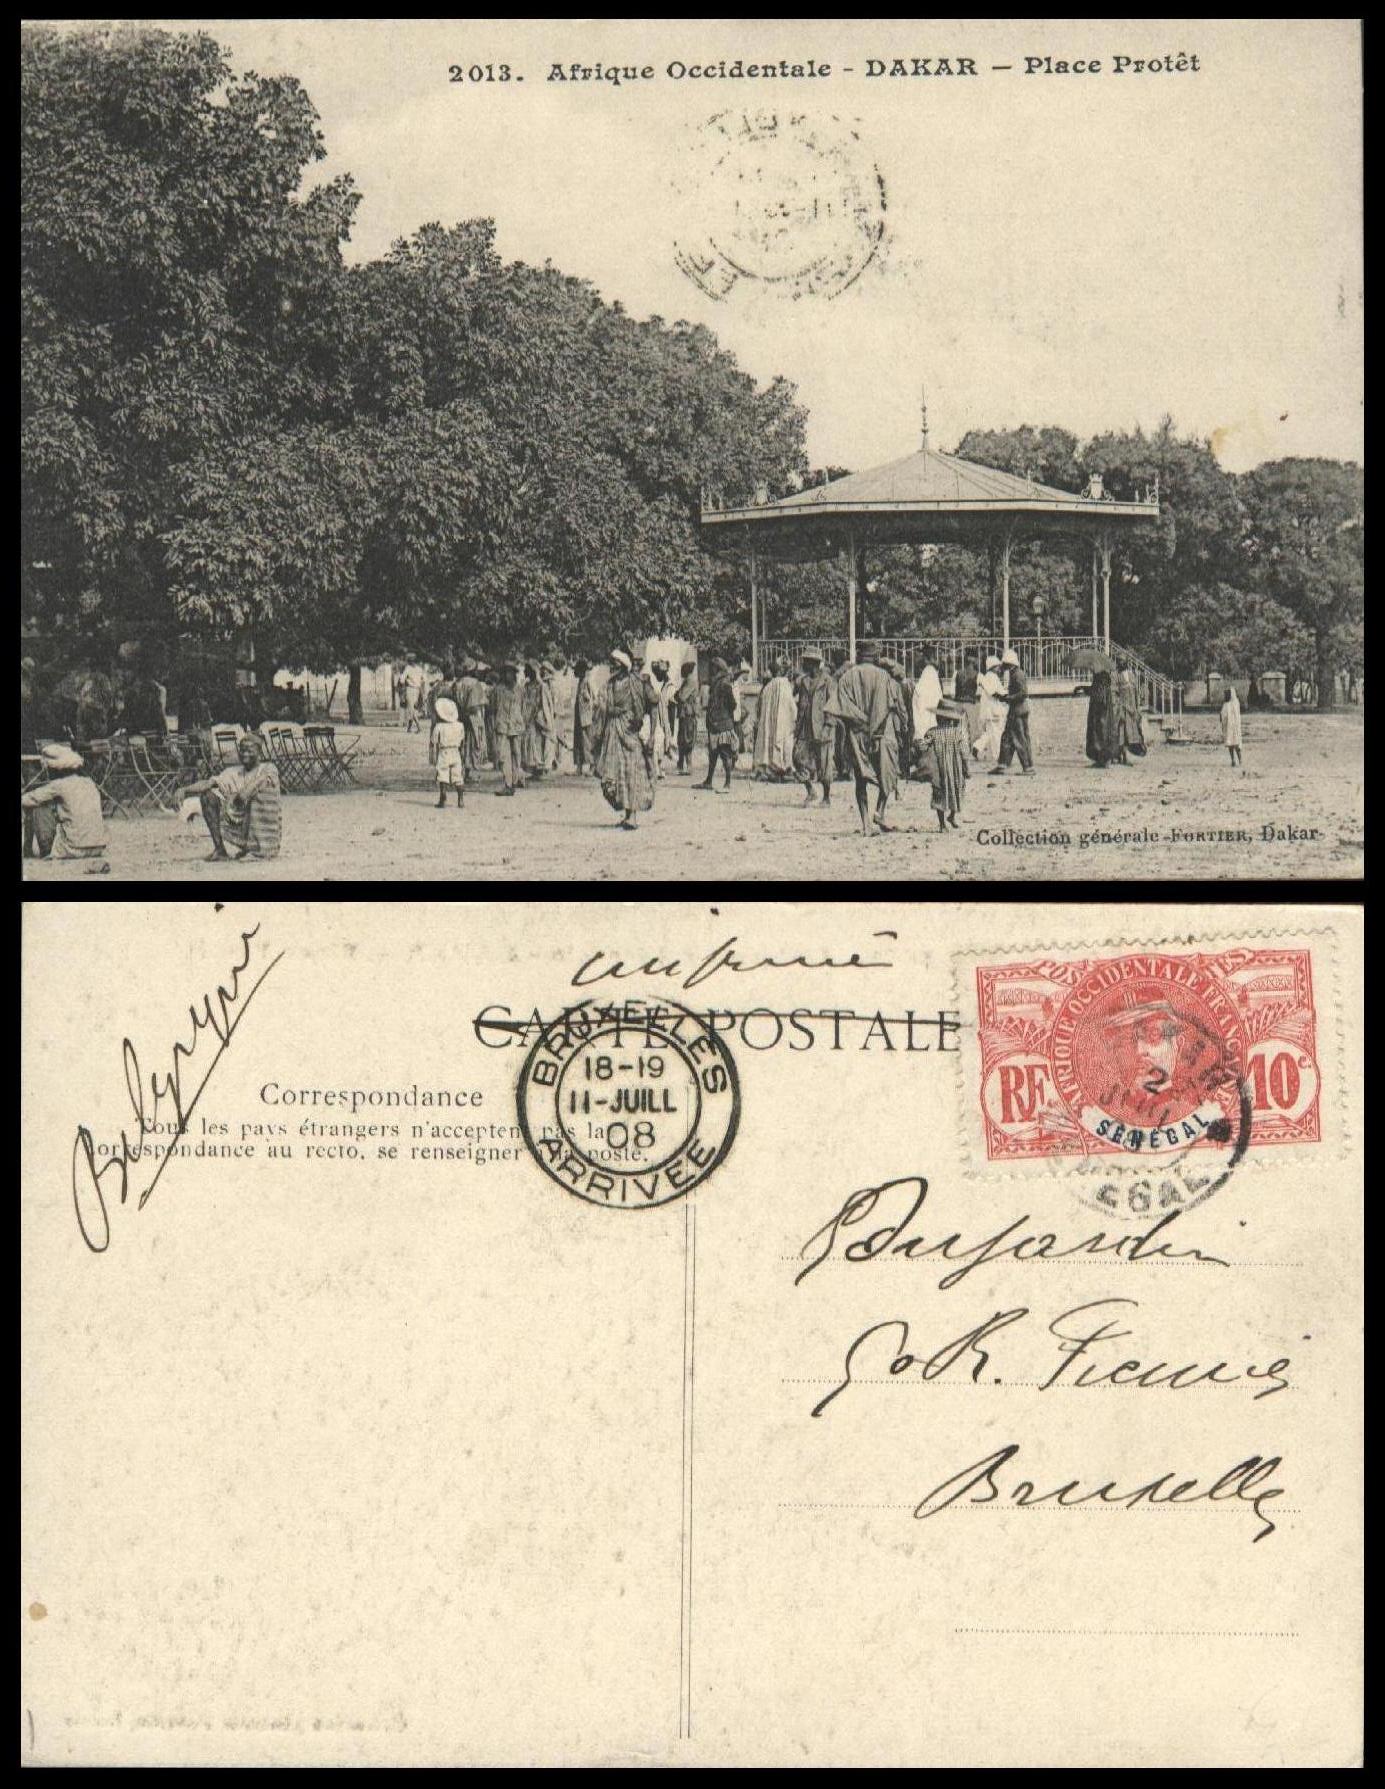 2013. Afrique Occidentale - DAKAR - Place Protêt
Collection générale FORTIER, Dakar
Belgique
imprimé
CARTE POSTALE
Correspondance
Tous les pays étrangers n'acceptent pas la
correspondance au recto, se renseigner à la poste.
BRUXELLES
18-19
11-JUILL
08
ARRIVÉE
POSTES
AFRIQUE OCCIDENTALE FRANÇAISE
RF
10c
SÉNÉGAL
2
Dujardin
R.
Bruxelles